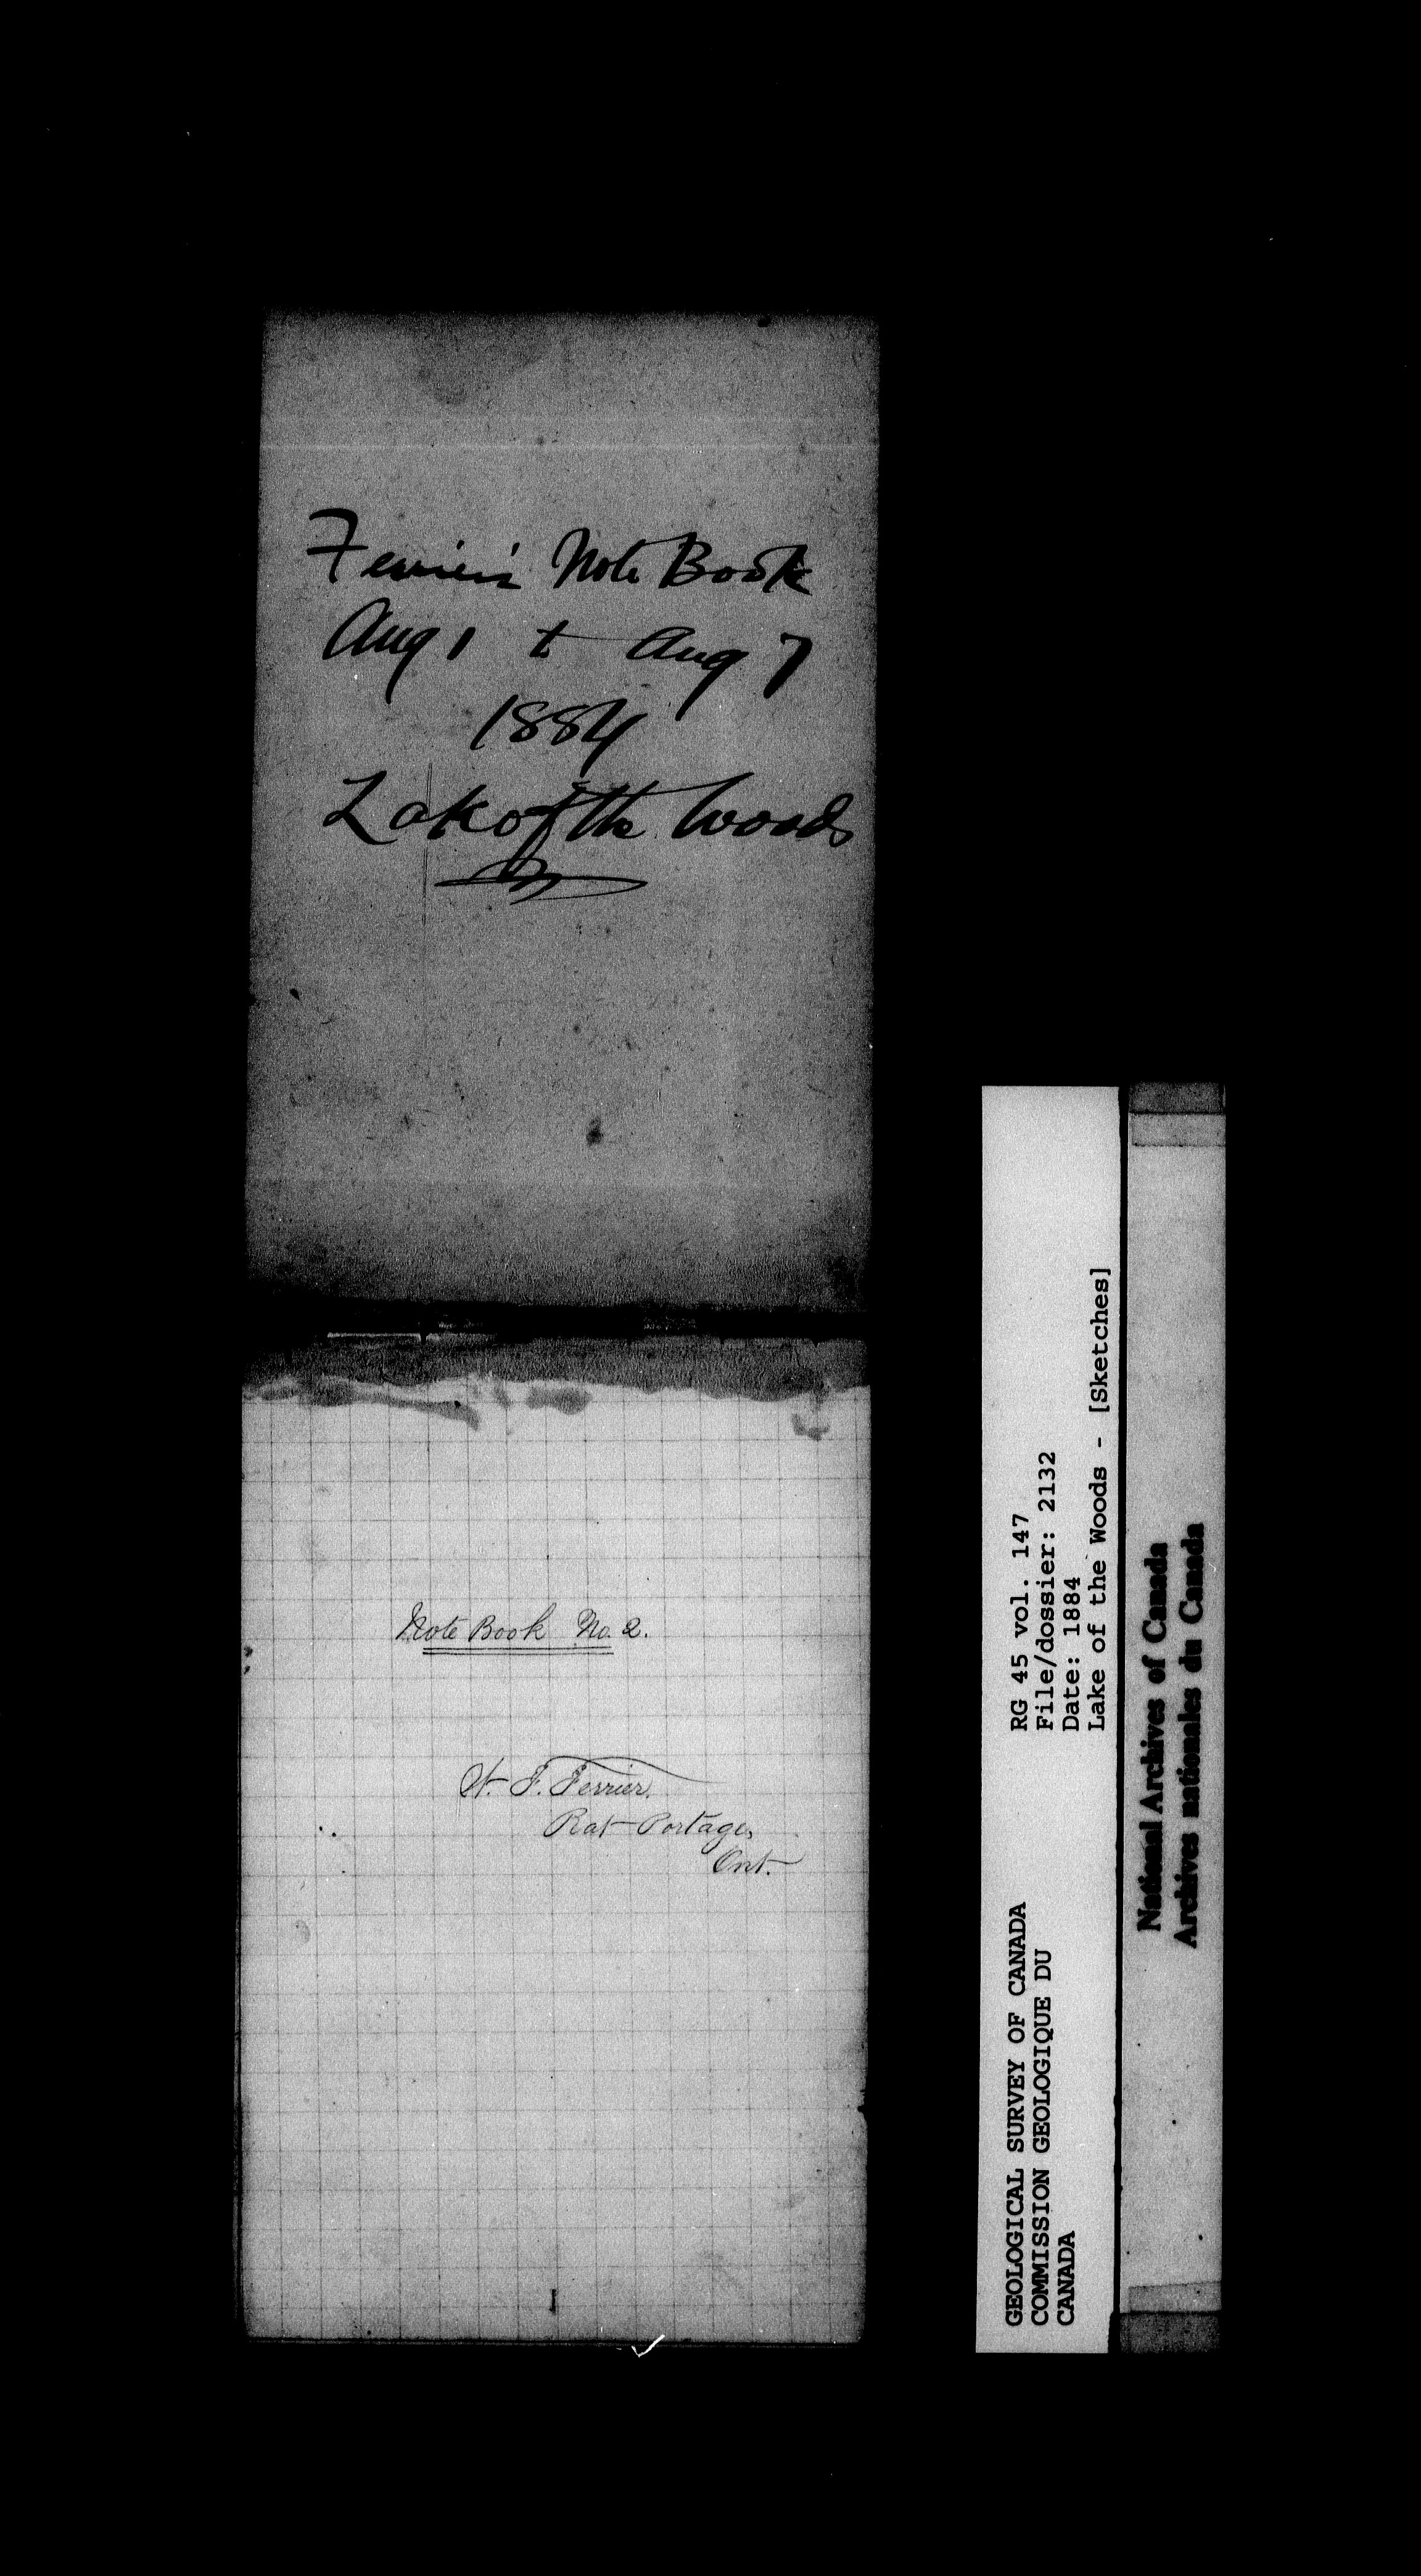 Ferrier's Note Book
Aug 1 to Aug 7
1884
Lake of the Woods
Note Book No. 2.
W. F. Ferrier,
Rat Portage,
Ont.
1
GEOLOGICAL SURVEY OF CANADA
COMMISSION GEOLOGIQUE DU
CANADA
RG 45 vol. 147
File/dossier: 2132
Date: 1884
Lake of the Woods - [Sketches]
National Archives of Canada
Archives nationales du Canada